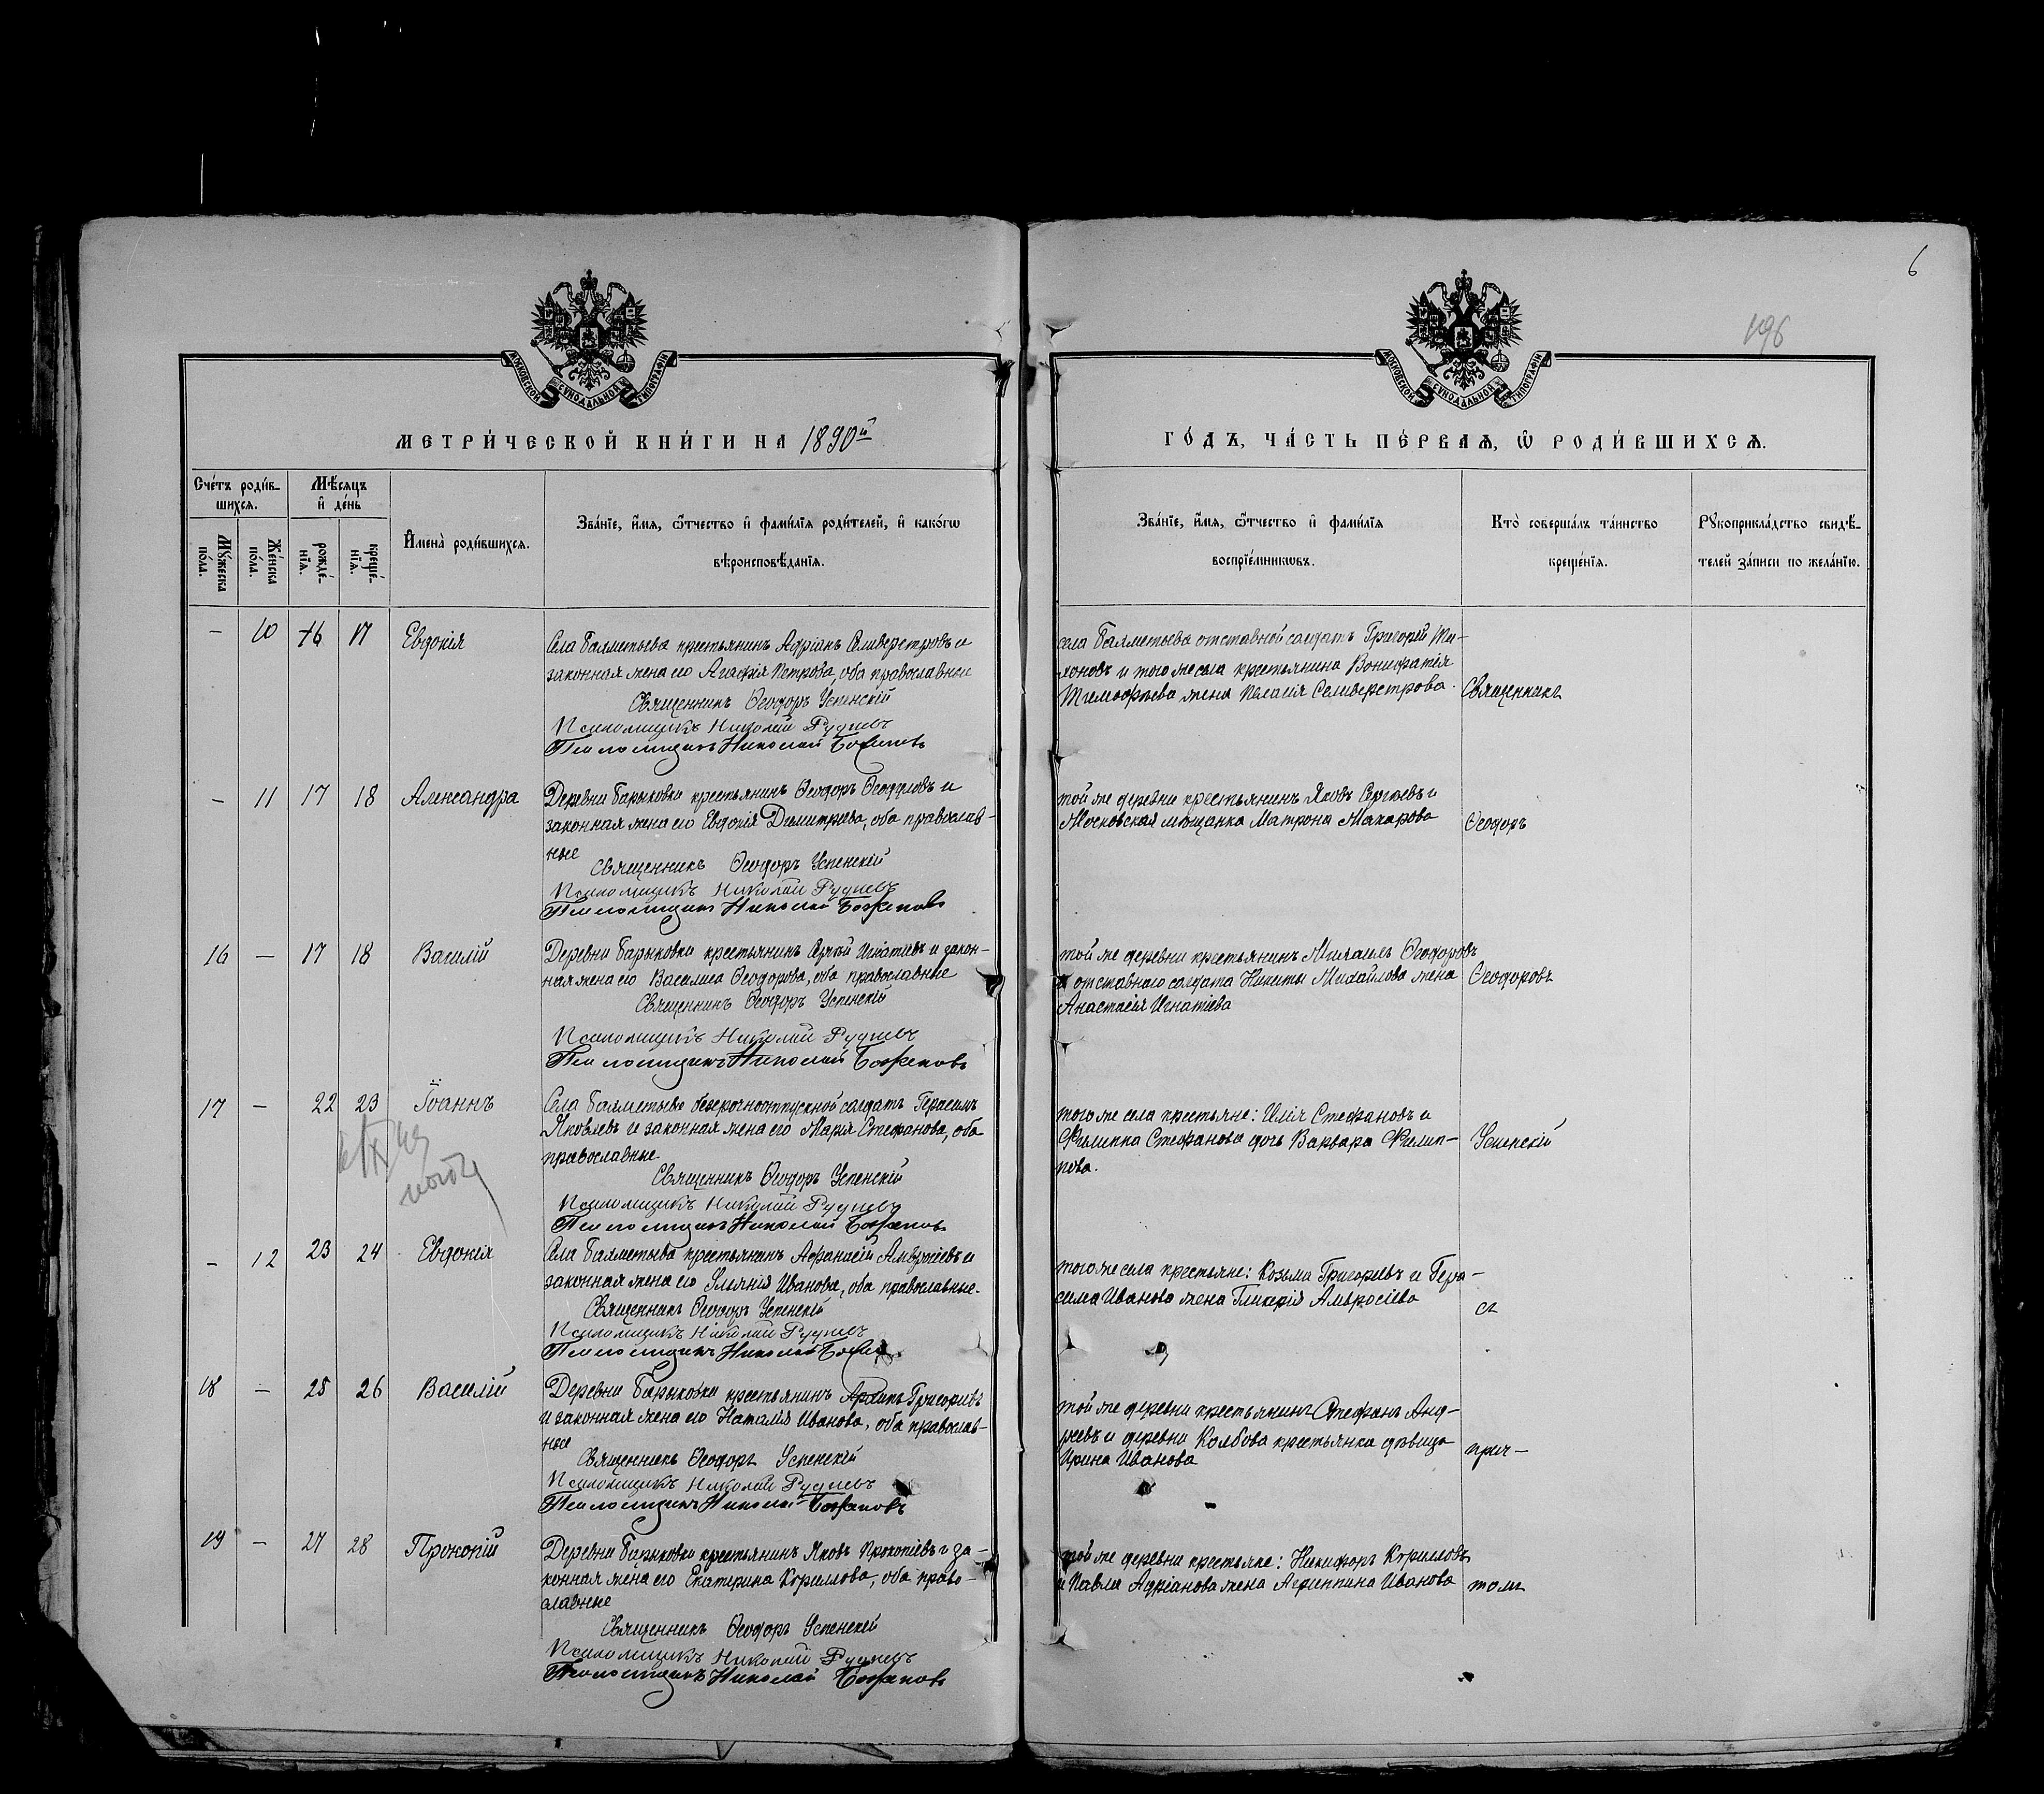 6
196
МОСКОВСКОЙ СѴНОДАЛЬНОЙ ТИПОГРАФІИ
МОСКОВСКОЙ СѴНОДАЛЬНОЙ ТИПОГРАФІИ
МЕТРИ́ЧЕСКОЙ КНИ́ГИ НА 1890й
ГО́ДЪ, ЧА́СТЬ ПЕ́РВАѦ, Ѡ҆ РОДИ́ВШИХСѦ.
Сче́тъ роди́в-
шихсѧ.
Мѣ́сѧцъ
и҆ де́нь
Мꙋ́жеска
по́ла.
Же́нска
по́ла.
рожде́-
нїѧ.
креще́-
нїѧ.
И҆мена̀ роди́вшихсѧ.
Зва́нїе, и҆́мѧ, ѻ҆́тчество и҆ фами́лїѧ роди́телей, и҆ како́гѡ
вѣроисповѣ́данїѧ.
Зва́нїе, и҆́мѧ, ѻ҆́тчество и҆ фами́лїѧ
воспрїе́мникѡвъ.
Кто̀ соверша́лъ та́инство
креще́нїѧ.
Рꙋкоприкла́дство свидѣ́-
телей за́писи по жела́нїю.
– 10 16 17 Евдокія
Села Балметьева крестьянинъ Адріанъ Селиверстровъ и
законная жена его Агафія Петрова, оба православные
Священникъ Ѳеодоръ Успенскій
Псаломщикъ Николай Рудневъ
Псаломщикъ Николай
села Балметьева отставной солдатъ Григорій Ти-
хоновъ и того же села крестьянина Вонифатія
Тимоѳеева жена Пелагія Селиверстрова.
Священникъ
– 11 17 18 Александра
Деревни Барыковки крестьянинъ Ѳеодоръ Ѳеодуловъ и
законная жена его Евдокія Димитріева, оба православ-
ные
Священникъ Ѳеодоръ Успенскій
Псаломщикъ Николай Рудневъ
Псаломщикъ Николай
той же деревни крестьянинъ Яковъ Сергѣевъ и
Московская мѣщанка Матрона Макарова
Ѳеодоръ
16 – 17 18 Василій
Деревни Барыковки крестьянинъ Сергѣй Игнатіевъ и закон-
ная жена его Василиса Ѳеодорова, оба православные
Священникъ Ѳеодоръ Успенскій
Псаломщикъ Николай Рудневъ
Псаломщикъ Николай
той же деревни крестьянинъ Михаилъ Ѳеодоровъ
и отставнаго солдата Никиты Михайлова жена
Анастасія Игнатіева
Ѳеодоровъ
17 – 22 23 Іоаннъ
Села Балметьева безсрочноотпускной солдатъ Герасимъ
Яковлевъ и законная жена его Марія Стефанова, оба
православные.
Священникъ Ѳеодоръ Успенскій
Псаломщикъ Николай Рудневъ
Псаломщикъ Николай
того же села крестьяне: Илія Стефановъ и
Филиппа Стефанова дочь Варвара Филип-
пова.
Успенскій
– 12 23 24 Евдокія
Села Балметьева крестьянинъ Аѳанасій Амвросіевъ и
законная жена его Іуліанія Иванова, оба православные.
Священникъ Ѳеодоръ Успенскій
Псаломщикъ Николай Рудневъ
Псаломщикъ Николай
того же села крестьяне: Козьма Григорьевъ и Гера-
сима Иванова жена Гликерія Амвросіева
съ
18 – 25 26 Василій
Деревни Барыковки крестьянинъ Григорьевъ
и законная жена его Наталія Иванова, оба православ-
ные
Священникъ Ѳеодоръ Успенскій
Псаломщикъ Николай Рудневъ
Псаломщикъ Николай
той же деревни крестьянинъ Стефанъ Анд-
реевъ и деревни Колбова крестьянка дѣвица
Ирина Иванова
прич-
19 – 27 28 Прокопій
Деревни Барыковки крестьянинъ Яковъ Прокопіевъ и за-
конная жена его Екатерина Кориллова, оба право-
славные
Священникъ Ѳеодоръ Успенскій
Псаломщикъ Николай Рудневъ
Псаломщикъ Николай
той же деревни крестьяне: Никифоръ Корилловъ
и Павла Адріанова жена Агриппина Иванова
томъ